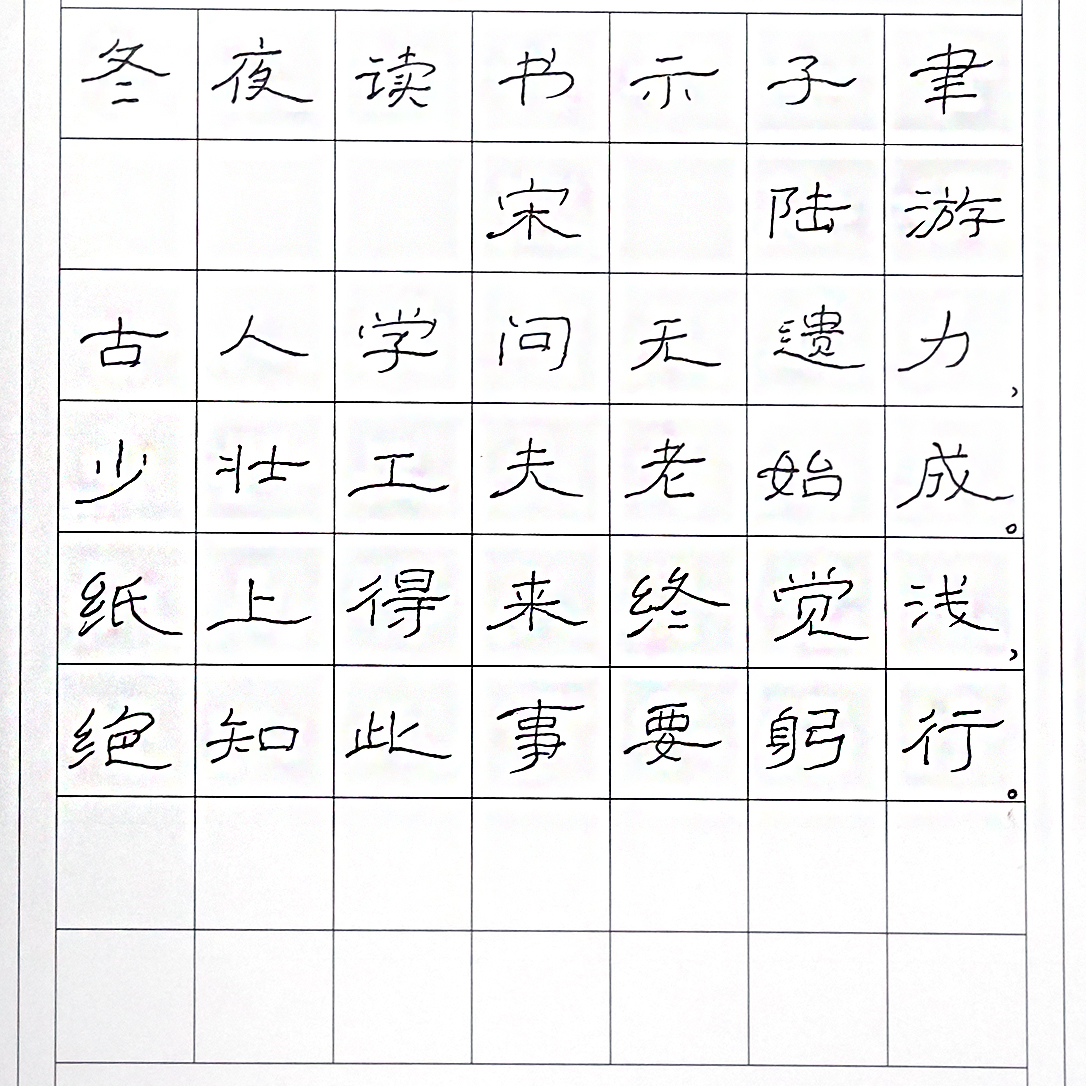 冬夜读书示子聿
宋 陆游
古人学问无遗力，
少壮工夫老始成。
纸上得来终觉浅，
绝知此事要躬行。